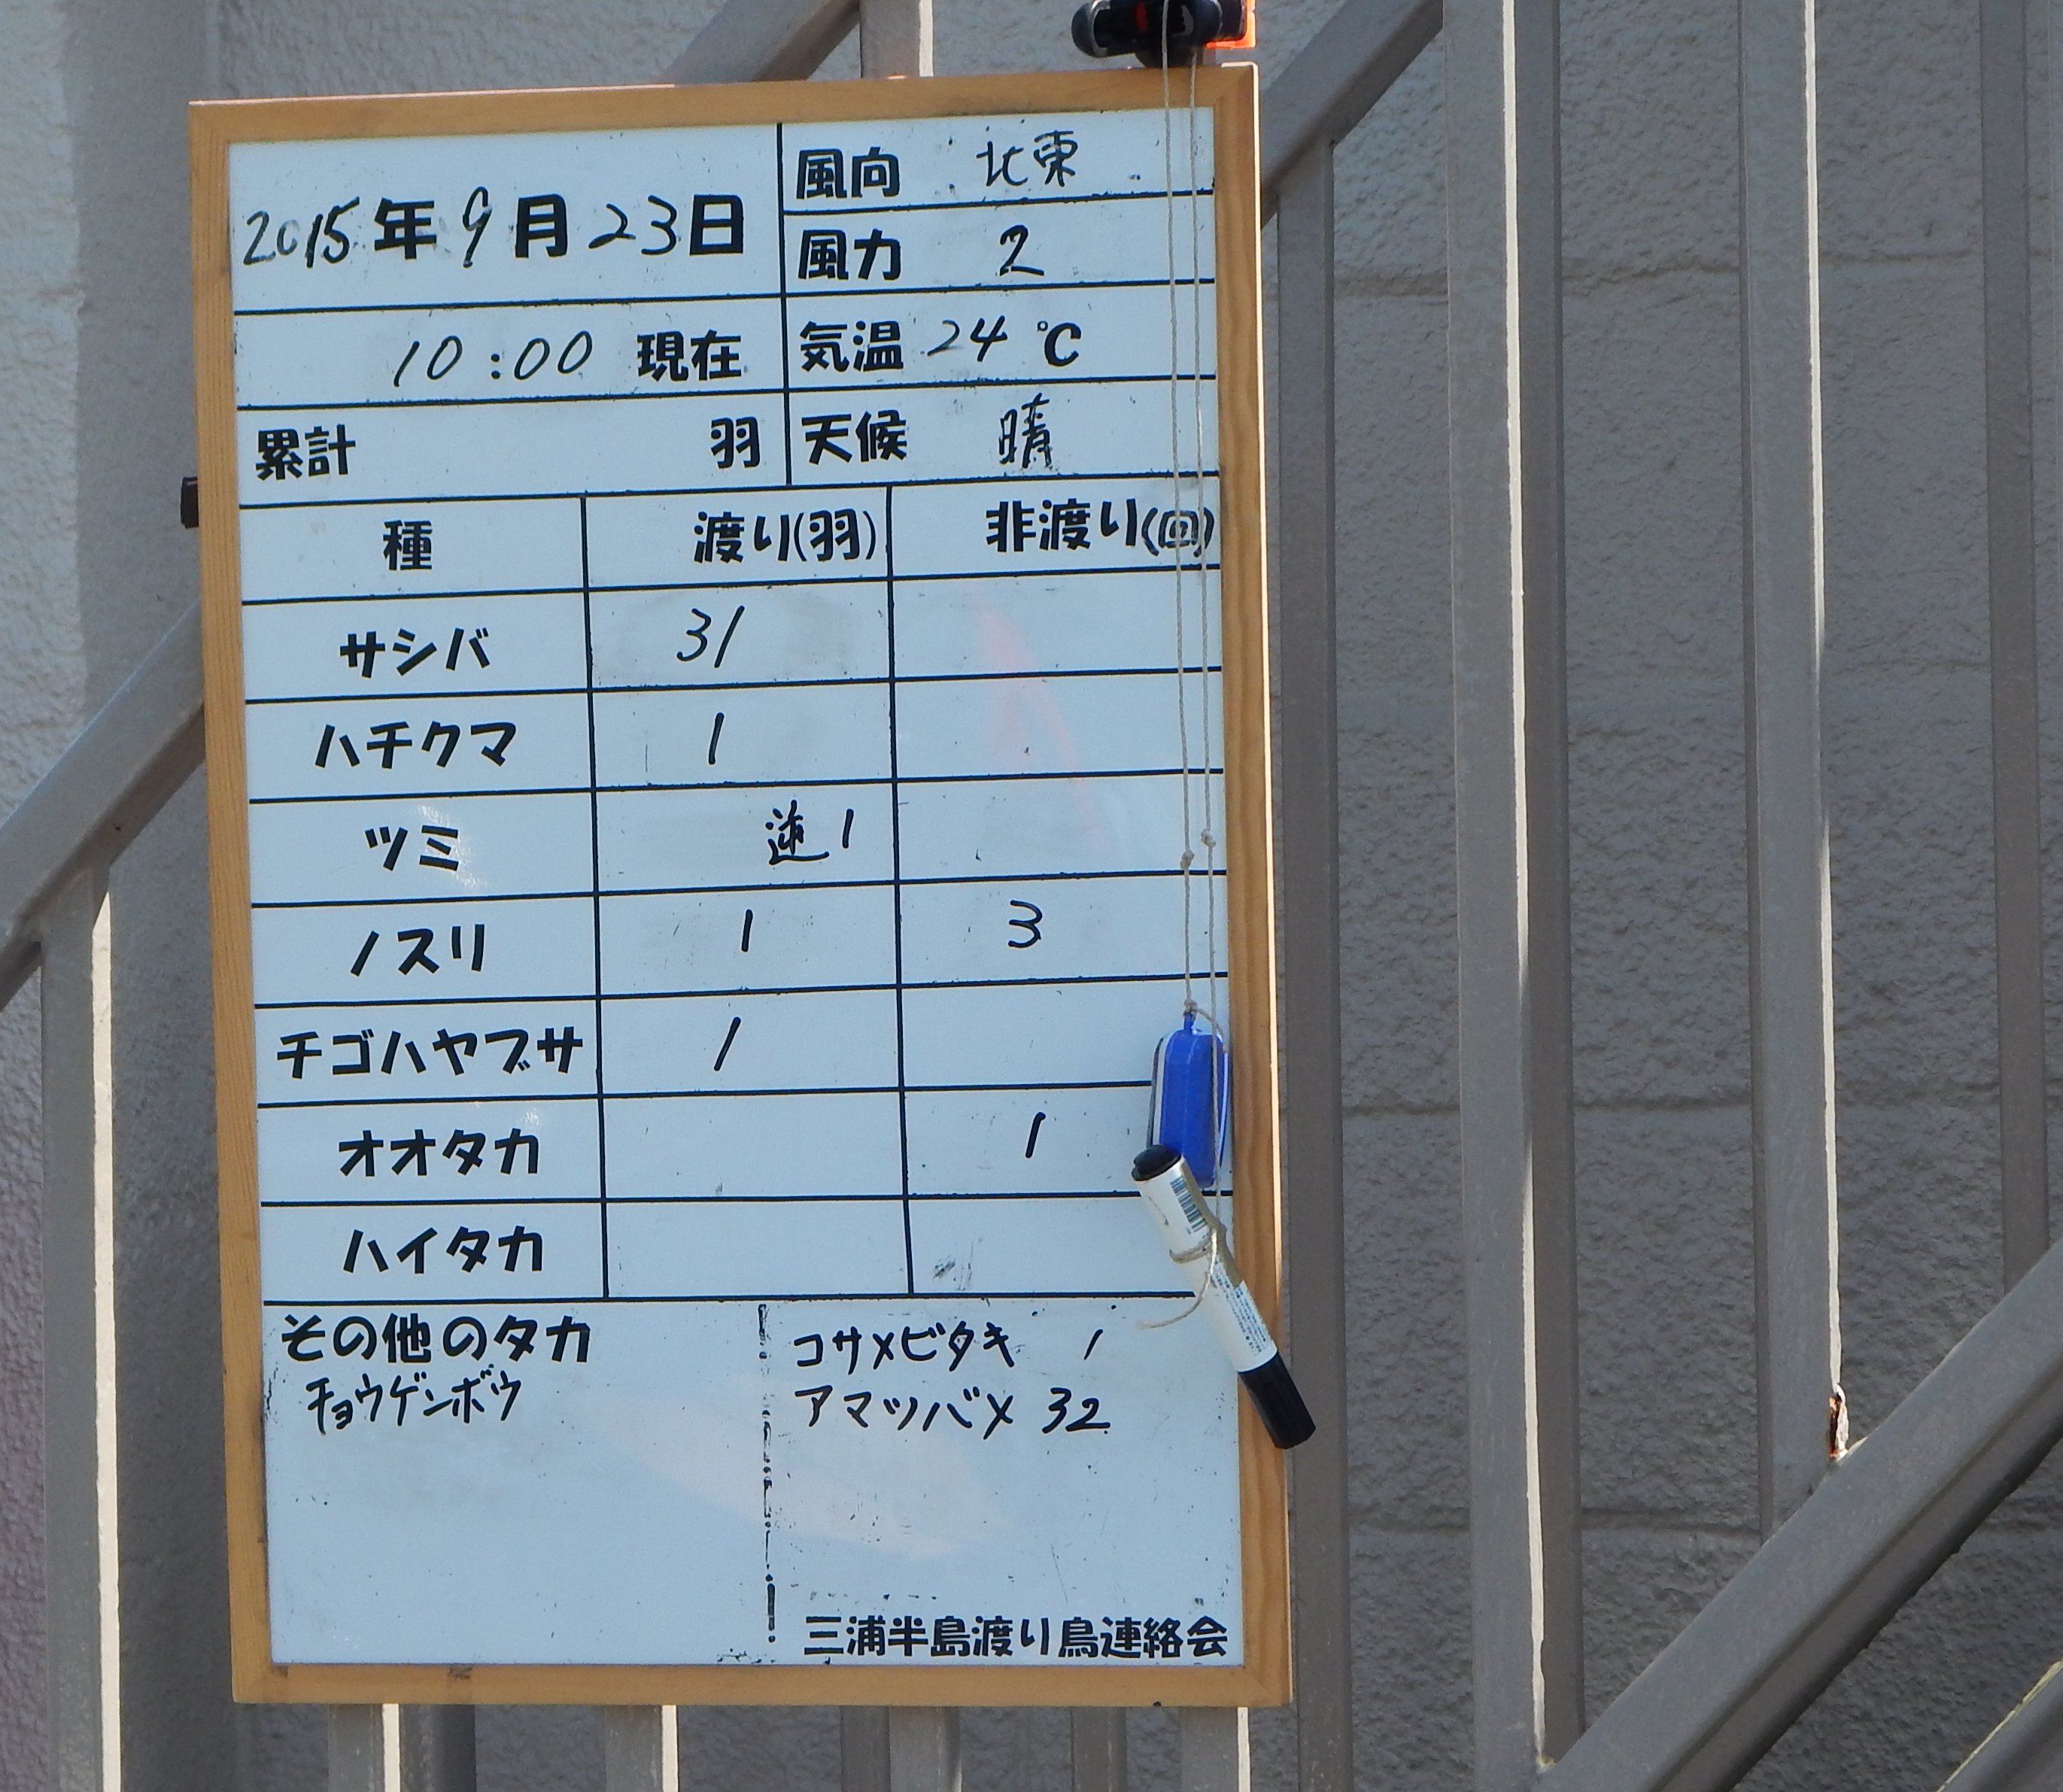 2015年9月23日
風向 北東
風力 2
10:00 現在
気温 24 ℃
累計 羽
天候 晴
種 渡り(羽) 非渡り(回)
サシバ 31
ハチクマ 1
ツミ 逆1
ノスリ 1 3
チゴハヤブサ 1
オオタカ 1
ハイタカ
その他のタカ
チョウゲンボウ
コサメビタキ 1
アマツバメ 32
三浦半島渡り鳥連絡会